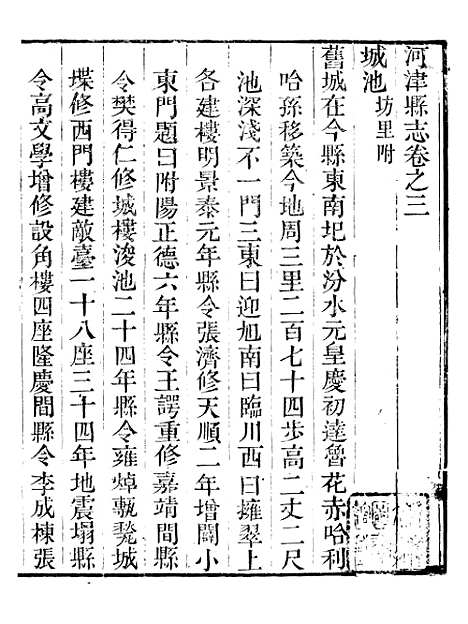 河津縣志卷之三
城池坊里附
舊城在今縣東南圮於汾水元皇慶初達魯花赤哈利
哈孫移築今地周三里二百七十四步高二丈二尺
池深淺不一門三東曰迎旭南曰臨川西曰擁翠上
各建樓明景泰元年縣令張濟修天順二年增闢小
東門題曰附陽正德六年縣令王諤重修嘉靖間縣
令樊得仁修城樓浚池二十四年縣令雍焯甎甃城
堞修西門樓建敵臺一十八座三十四年地震塌縣
令高文學增修設角樓四座隆慶間縣令李成棟張